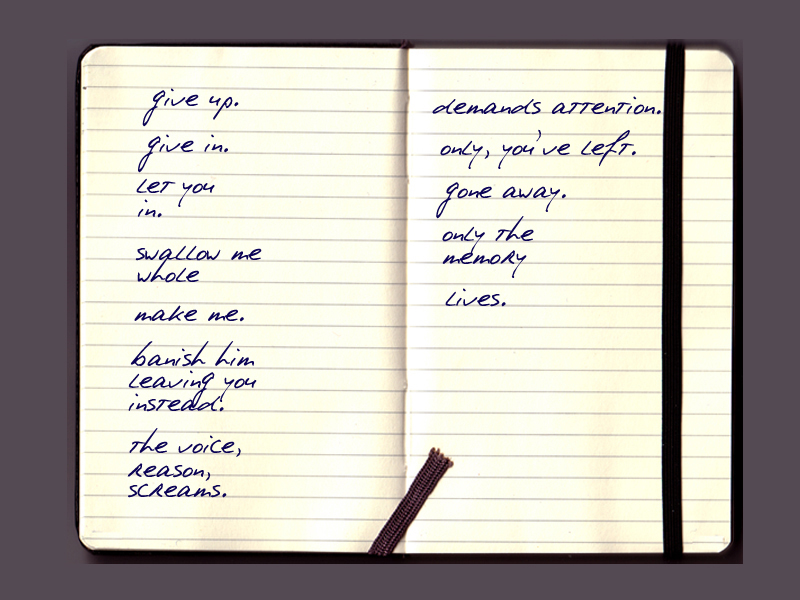 give up.
give in.
let you
in.
swallow me
whole
make me.
banish him
leaving you
instead.
the voice,
reason,
screams.
demands attention.
only, you've left.
gone away.
only the
memory
lives.